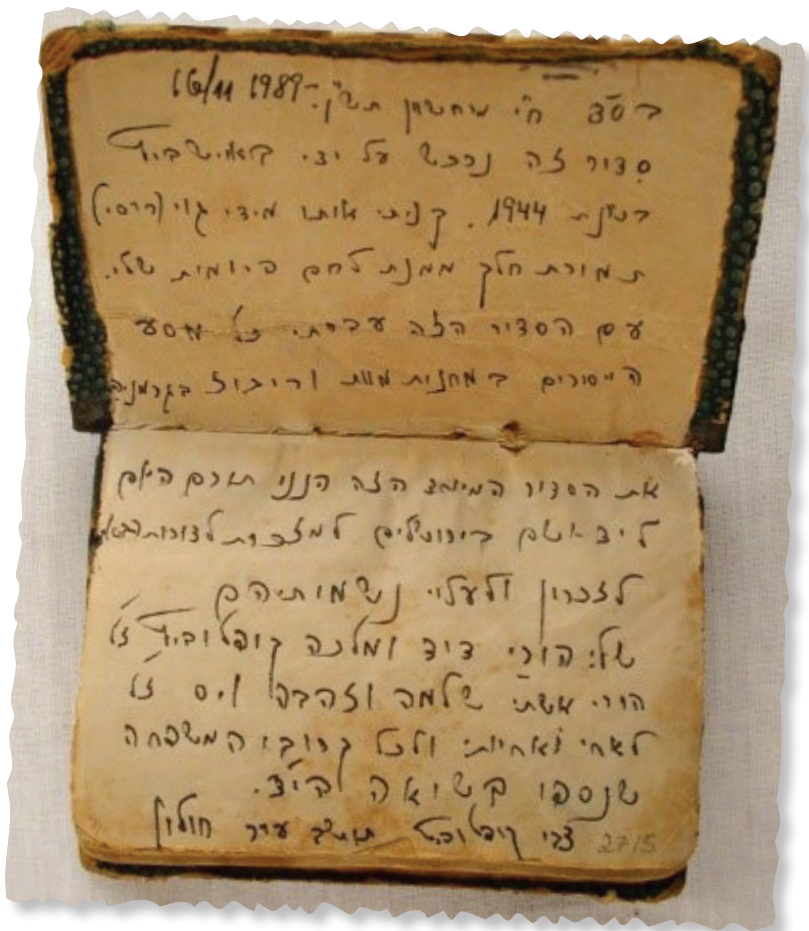 בס"ד ח"י מרחשון תש"ן - 16/11 1989
סדור זה נרכש על ידי באושביץ
בשנת 1944. קניתי אותו מידי גוי
תמורת חלק ממנת לחם היומית שלי.
עם הסדור הזה עברתי כל מסע
היסורים במחנות מוות וריכוז בגרמניה
את הסדור המיוחד הזה הנני תורם היום
ליד ושם בירושלים למזכרת לדורות הבאים
לזכרון ולעלוי נשמותיהם
של: הורי דוד ומלכה קופלוביץ ז"ל
הורי אשתי שלמה וזהבה ויס ז"ל
לאחי ואחיותי ולכל קרובי המשפחה
שנספו בשואה הי"ד.
צבי קופלוביץ תושב עיר חולון 2715